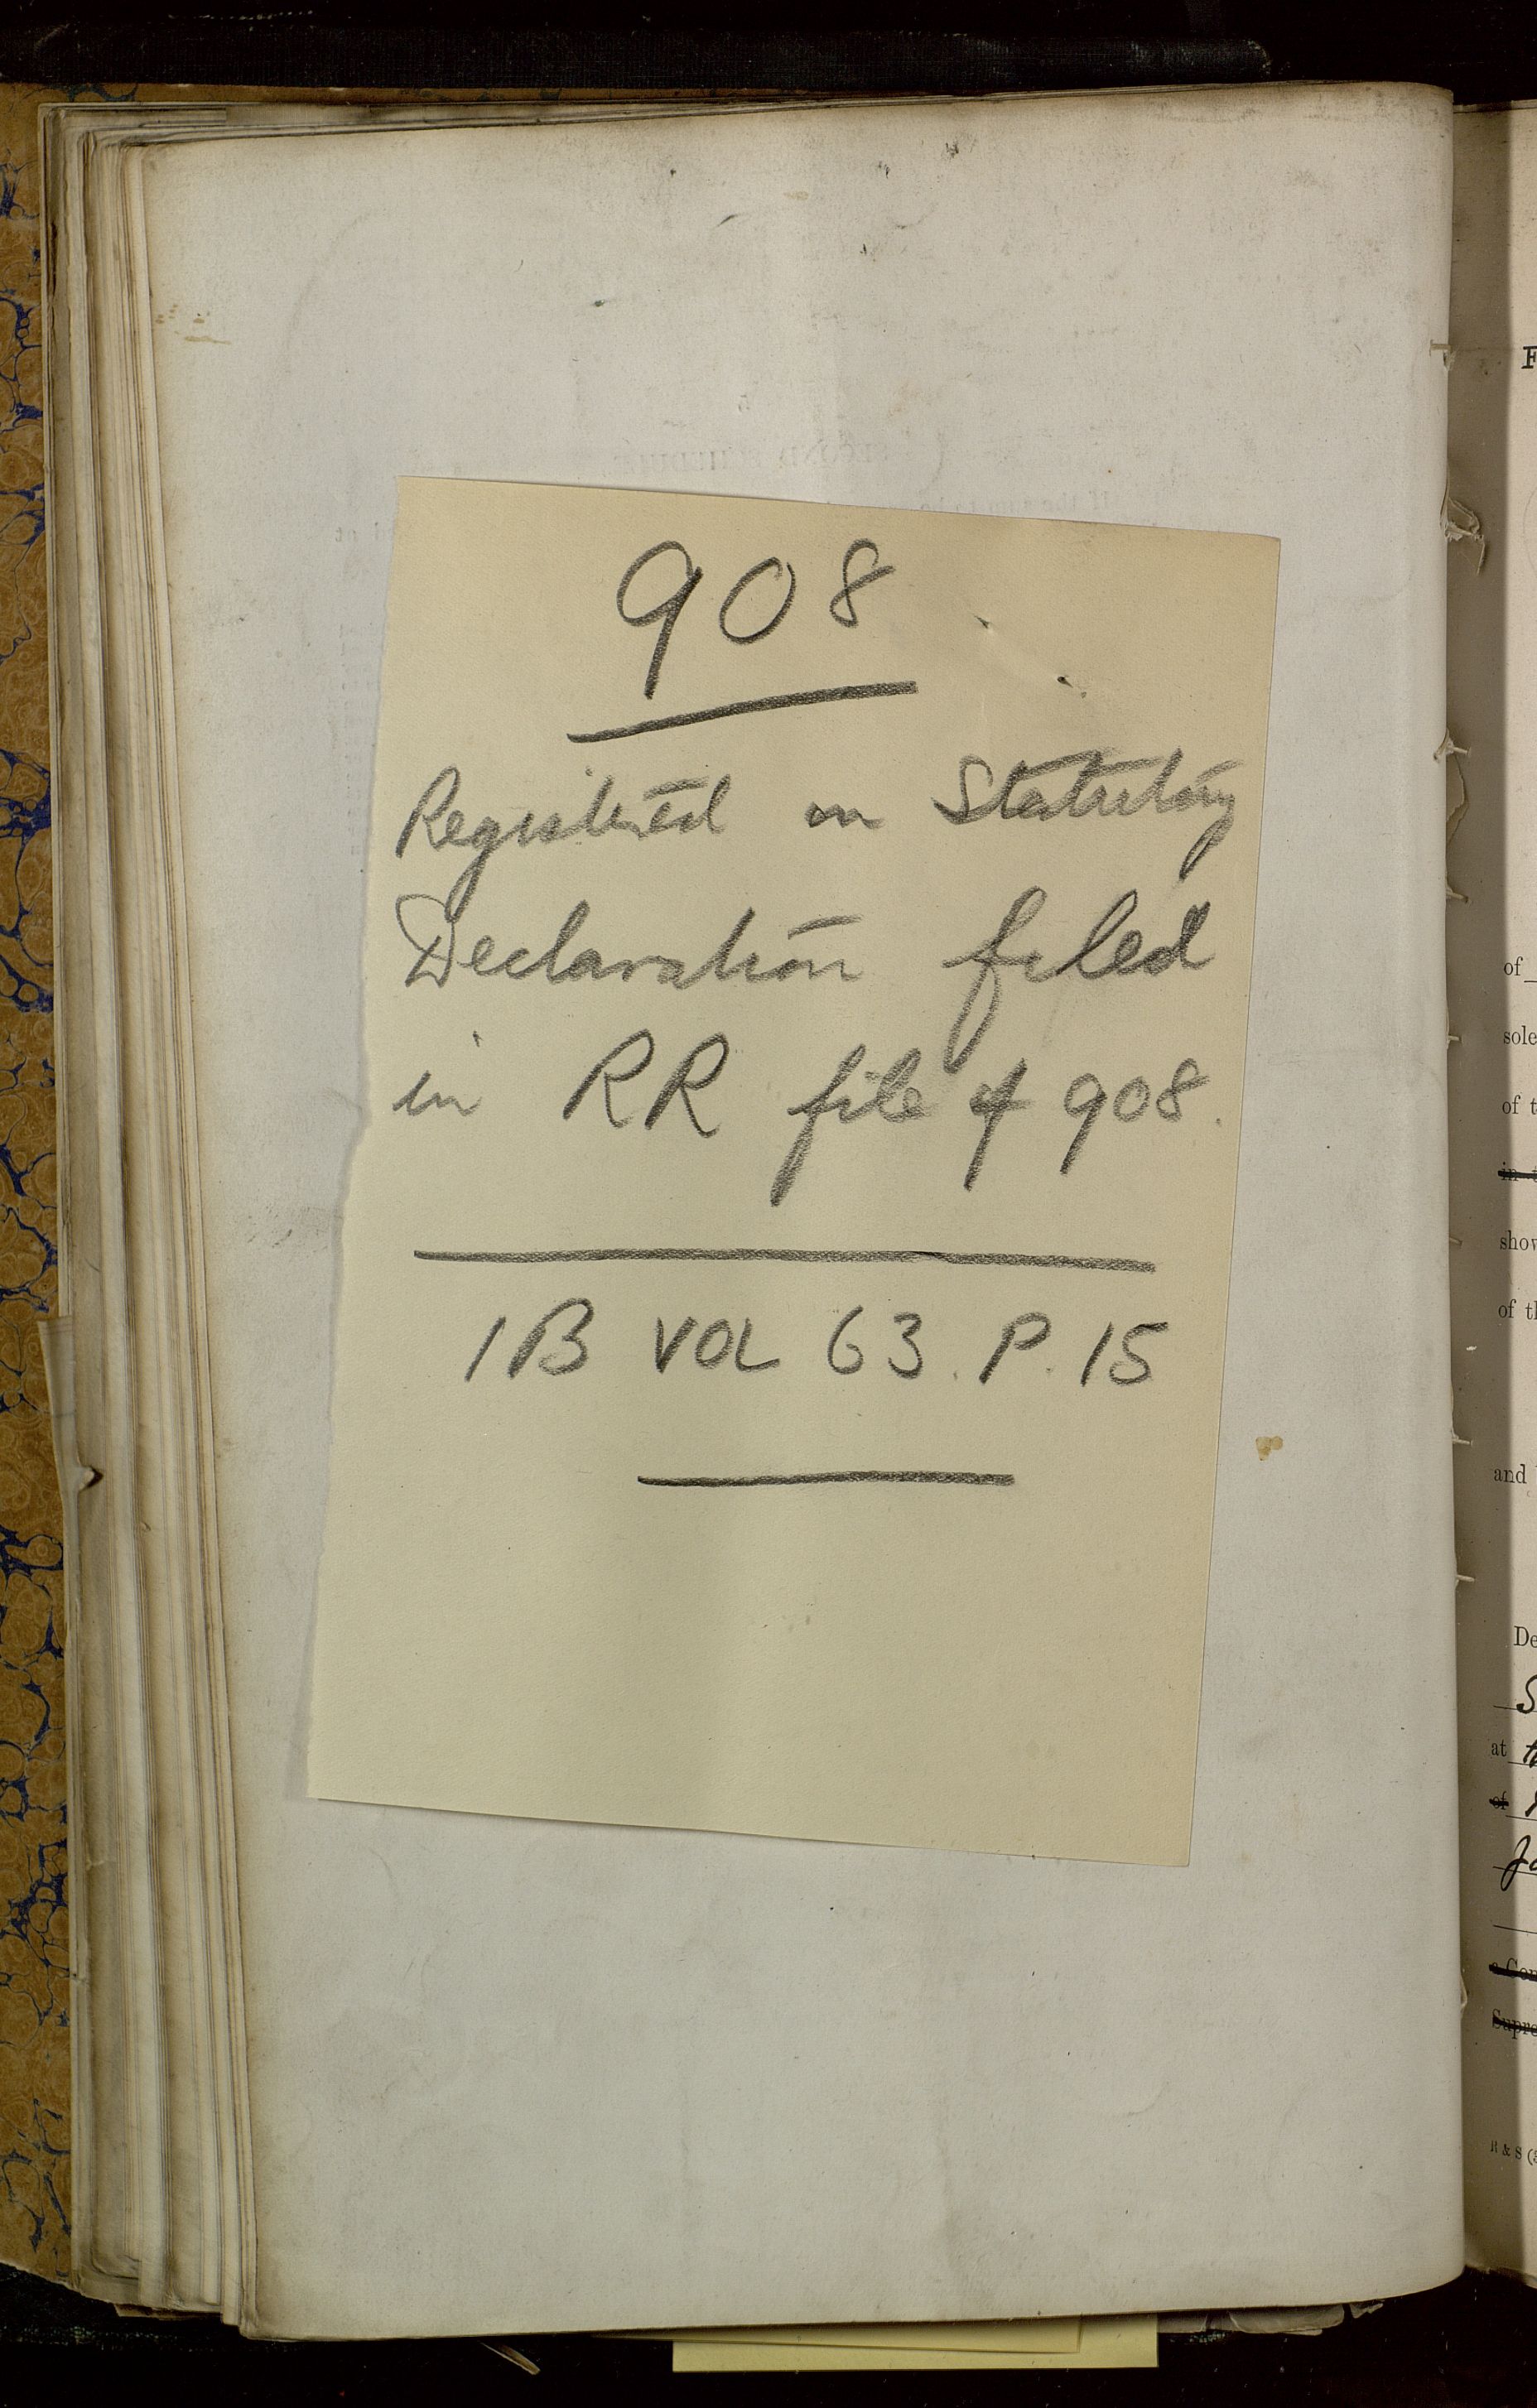 908
Registered on Statutory
Declaration filed
in RR file of 908.
1B VOL 63. P. 15
F
of
sole
of t
in t
show
of th
and
De
S
at
of
a Con
Supre
R & S (